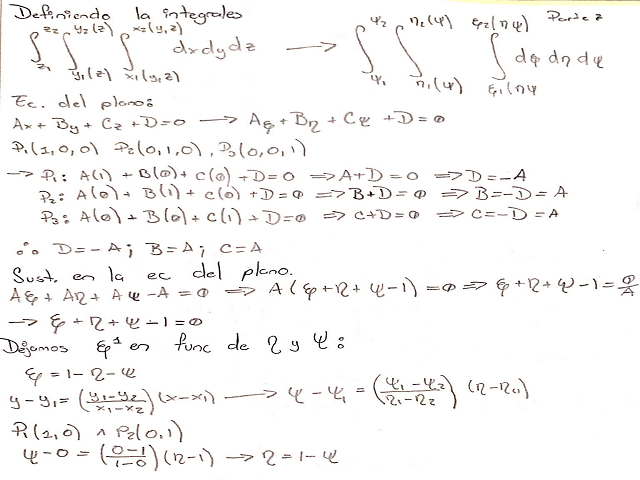 Definiendo la integrales
Parte 2
∫_{z1}^{z2} ∫_{y1(z)}^{y2(z)} ∫_{x1(y,z)}^{x2(y,z)} dxdydz → ∫_{ψ1}^{ψ2} ∫_{η1(ψ)}^{η2(ψ)} ∫_{ξ1(ηψ}^{ξ2(ηψ)} dξ dη dψ
Ec. del plano:
Ax + By + Cz + D = 0 → Aξ + Bη + Cψ + D = 0
P1(1,0,0) P2(0,1,0), P3(0,0,1)
→ P1: A(1) + B(0) + C(0) + D = 0 ⇒ A+D = 0 ⇒ D = -A
P2: A(0) + B(1) + C(0) + D = 0 ⇒ B+D = 0 ⇒ B = -D = A
P3: A(0) + B(0) + C(1) + D = 0 ⇒ C+D = 0 ⇒ C = -D = A
∴ D = -A; B = A; C = A
Sust. en la ec del plano.
Aξ + Aη + Aψ - A = 0 ⇒ A(ξ + η + ψ - 1) = 0 ⇒ ξ + η + ψ - 1 = 0/A
→ ξ + η + ψ - 1 = 0
Dejamos ξ¹ en func de η y ψ:
ξ = 1 - η - ψ
y - y1 = (y1-y2/x1-x2)(x-x1) → ψ - ψ1 = (ψ1-ψ2/η1-η2)(η-η1)
P1(1,0) ∧ P2(0,1)
ψ - 0 = (0-1/1-0)(η-1) → η = 1 - ψ